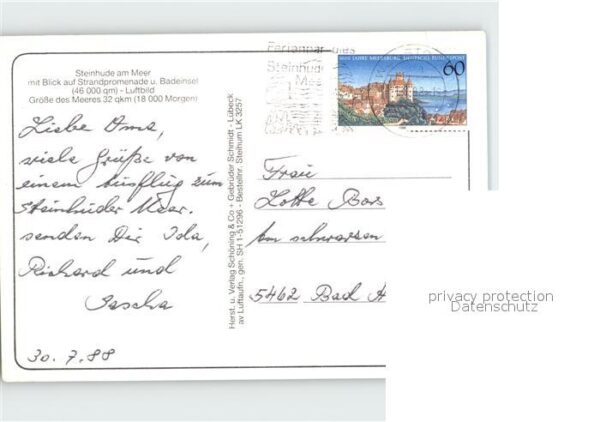 Steinhude am Meer
mit Blick auf Strandpromenade u. Badeinsel
(46 000 qm) - Luftbild
Größe des Meeres 32 qkm (18 000 Morgen)
Liebe Oma,
viele Grüße von
einem Ausflug zum
Steinhuder Meer.
senden Dir Ida,
Richard und
Sascha
30.7.88
Herst. u. Verlag Schöning & Co + Gebrüder Schmidt - Lübeck
av Luftaufn., gen. SH 1-51296 - Bestellnr. Steihum LK 3257
Steinhude
Meer
1000 JAHRE MEERSBURG DEUTSCHE BUNDESPOST
60
Frau
Lotte
Am schwarzen
5462 Bad
privacy protection
Datenschutz